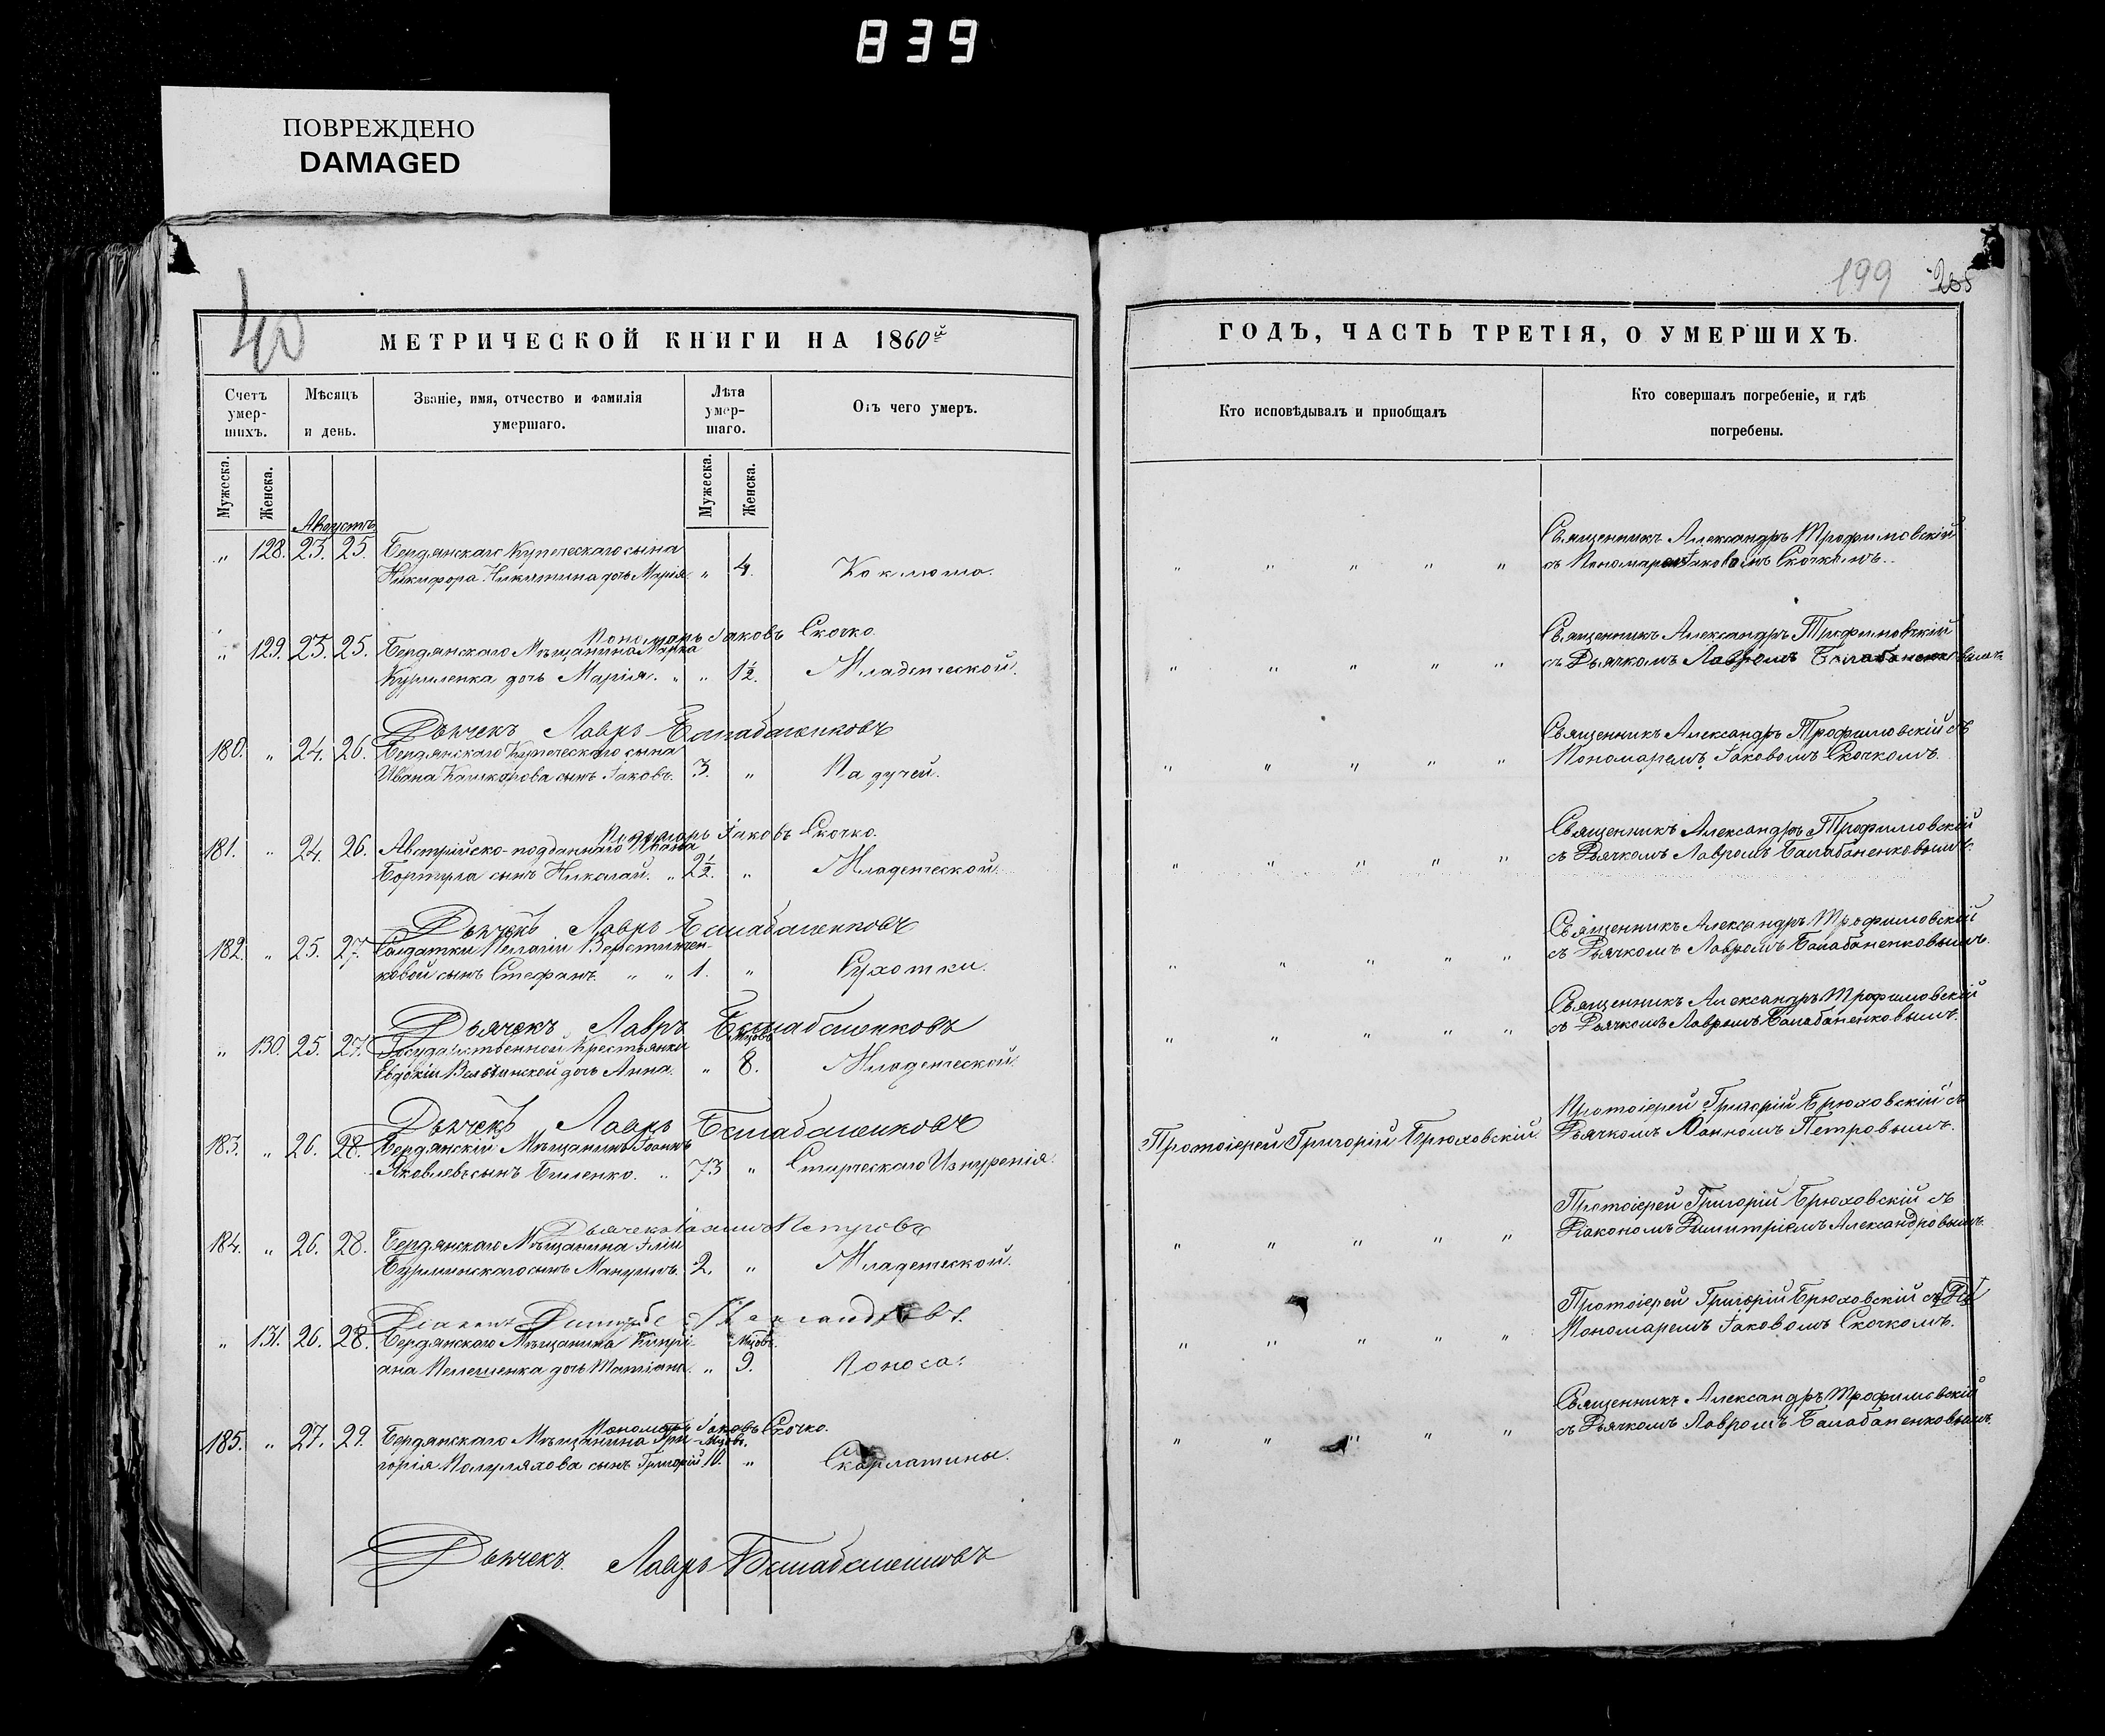 839
ПОВРЕЖДЕНО
DAMAGED
40
МЕТРИЧЕСКОЙ КНИГИ НА 1860й
Счетъ умер-шихъ.
Мѣсяцъ и день.
Званіе, имя, отчество и фамилія умершаго.
Лѣта умер-шаго.
Отъ чего умеръ.
Мужеска. Женска. Мужеска. Женска.
Августъ
" 128. 23. 25. Бердянскаго Купеческаго сына
Никифора Никитина дочь Марія. " 4. Коклюша.
Пономарь Іаковъ Скочко.
" 129. 23. 25. Бердянскаго Мѣщанина Марка
Куриленка дочь Марія. " " 1½. Младенческой.
Дьячекъ Лавръ Балабаненковъ
180. " 24. 26. Бердянскаго Купеческаго сына
Ивана Кашкарова сынъ Іаковъ. 3. " Падучей.
Пономарь Іаковъ Скочко.
181. " 24. 26. Австрійско-подданнаго Ивана
Бортула сынъ Николай. " 2½. " Младенческой.
Дьячекъ Лавръ Балабаненковъ
182. " 25. 27. Солдатки Пелагіи
ковой сынъ Стефанъ. " " 1. " Сухотки.
Дьячекъ Лавръ Балабаненковъ
" 130. 25. 27. Государственной Крестьянки Мцовъ
Евдокіи дочь Анна. " 8. Младенческой.
Дьячекъ Лавръ Балабаненковъ
183. " 26. 28. Бердянскій Мѣщанинъ Іоаннъ
Яковлевъ сынъ Биленко. " 73 " Старческаго Изнуренія.
Дьячекъ Іоаннъ Петровъ
184. " 26. 28. Бердянскаго Мѣщанина Іліи
сынъ Мануилъ. 2. " Младенческой.
Діаконъ Димитрій Александровъ.
" 131. 26. 28. Бердянскаго Мѣщанина Кипрі- Мцовъ.
ана Пелешенка дочь Татіана. " 9. Поноса.
Пономарь Іаковъ Скочко.
185. " 27. 29. Бердянскаго Мѣщанина Гри- Мцовъ.
горія Полуляхова сынъ Григорій 10. " Скарлатины.
Дьячекъ. Лавръ Балабаненковъ
199 205
ГОДЪ, ЧАСТЬ ТРЕТІЯ, О УМЕРШИХЪ.
Кто исповѣдывалъ и пріобщалъ
Кто совершалъ погребеніе, и гдѣ
погребены.
Священникъ Александръ Трофимовскій
" " " " " съ Пономаремъ Іаковомъ Скочкомъ.
Священникъ Александръ Трофимовскій
" " " " " съ Дьячкомъ Лавромъ Балабаненковымъ.
Священникъ Александръ Трофимовскій съ
" " " " " Пономаремъ Іаковомъ Скочкомъ.
Священникъ Александръ Трофимовскій
" " " " " съ Дьячкомъ Лавромъ Балабаненковымъ.
Священникъ Александръ Трофимовскій
" " " " " съ Дьячкомъ Лавромъ Балабаненковымъ.
Священникъ Александръ Трофимовскій
" " " " съ Дьячкомъ Лавромъ Балабаненковымъ.
Протоіерей Григорій Брюховскій съ
Протоіерей Григорій Брюховскій. Дьячкомъ Іоанномъ Петровымъ.
Протоіерей Григорій Брюховскій съ
" " " " " Діакономъ Димитріемъ Александровымъ.
Протоіерей Григорій Брюховскій съ
" " " " " Пономаремъ Іаковомъ Скочкомъ.
Священникъ Александръ Трофимовскій
" " " " " съ Дьячкомъ Лавромъ Балабаненковымъ.